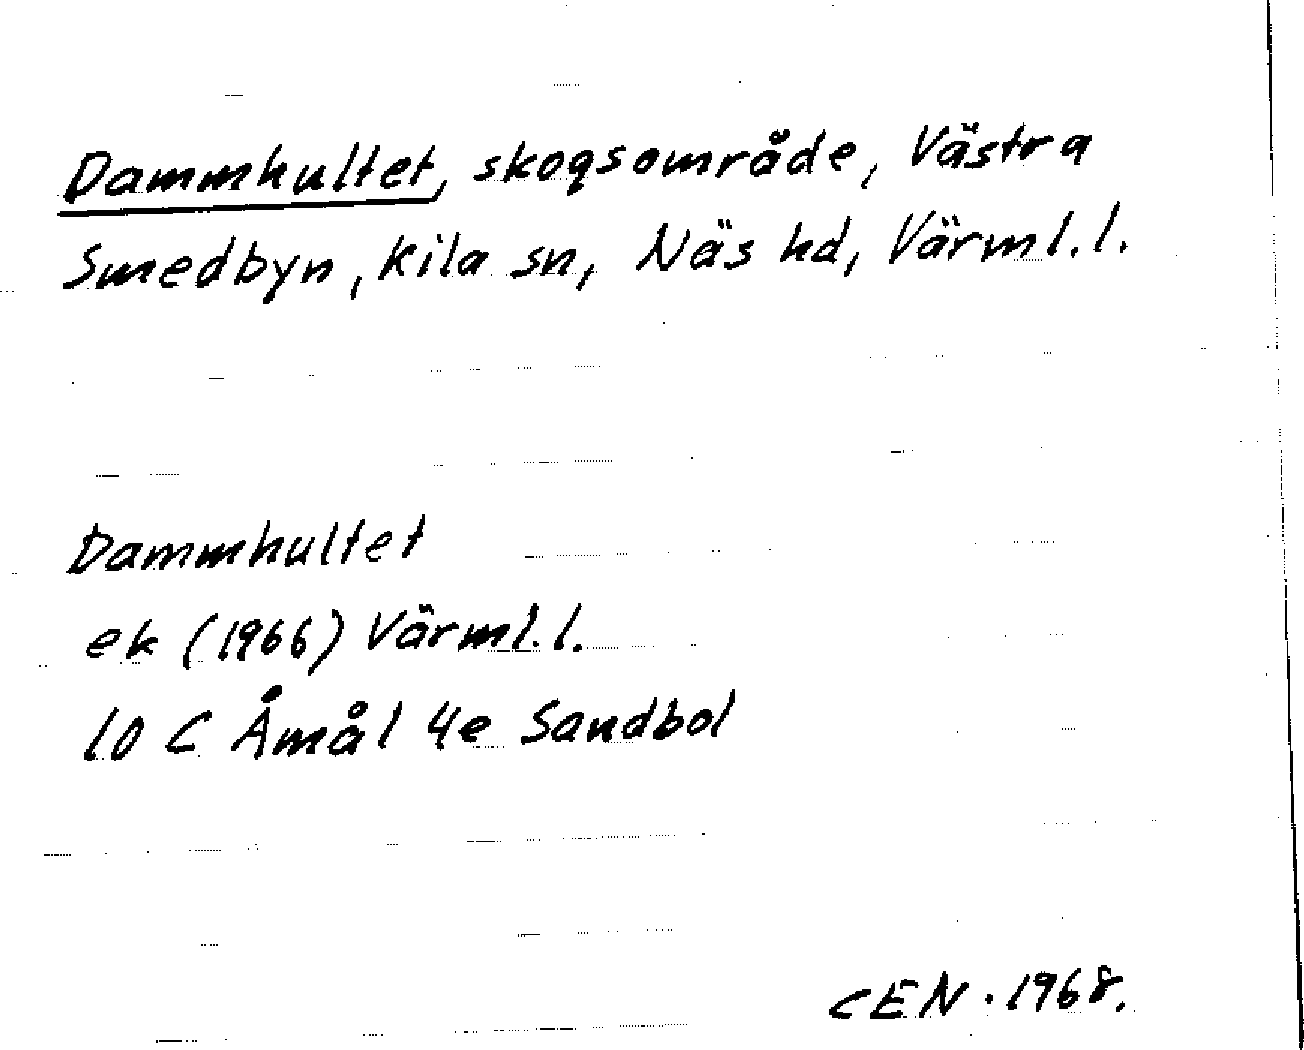 Dammhultet, skogsområde, Västra
Smedbyn, Kila sn, Näs hd, Värml.l.
Dammhultet
ek (1966) Värml.l.
10 C Åmål 4e Sandbol
CEN. 1968.